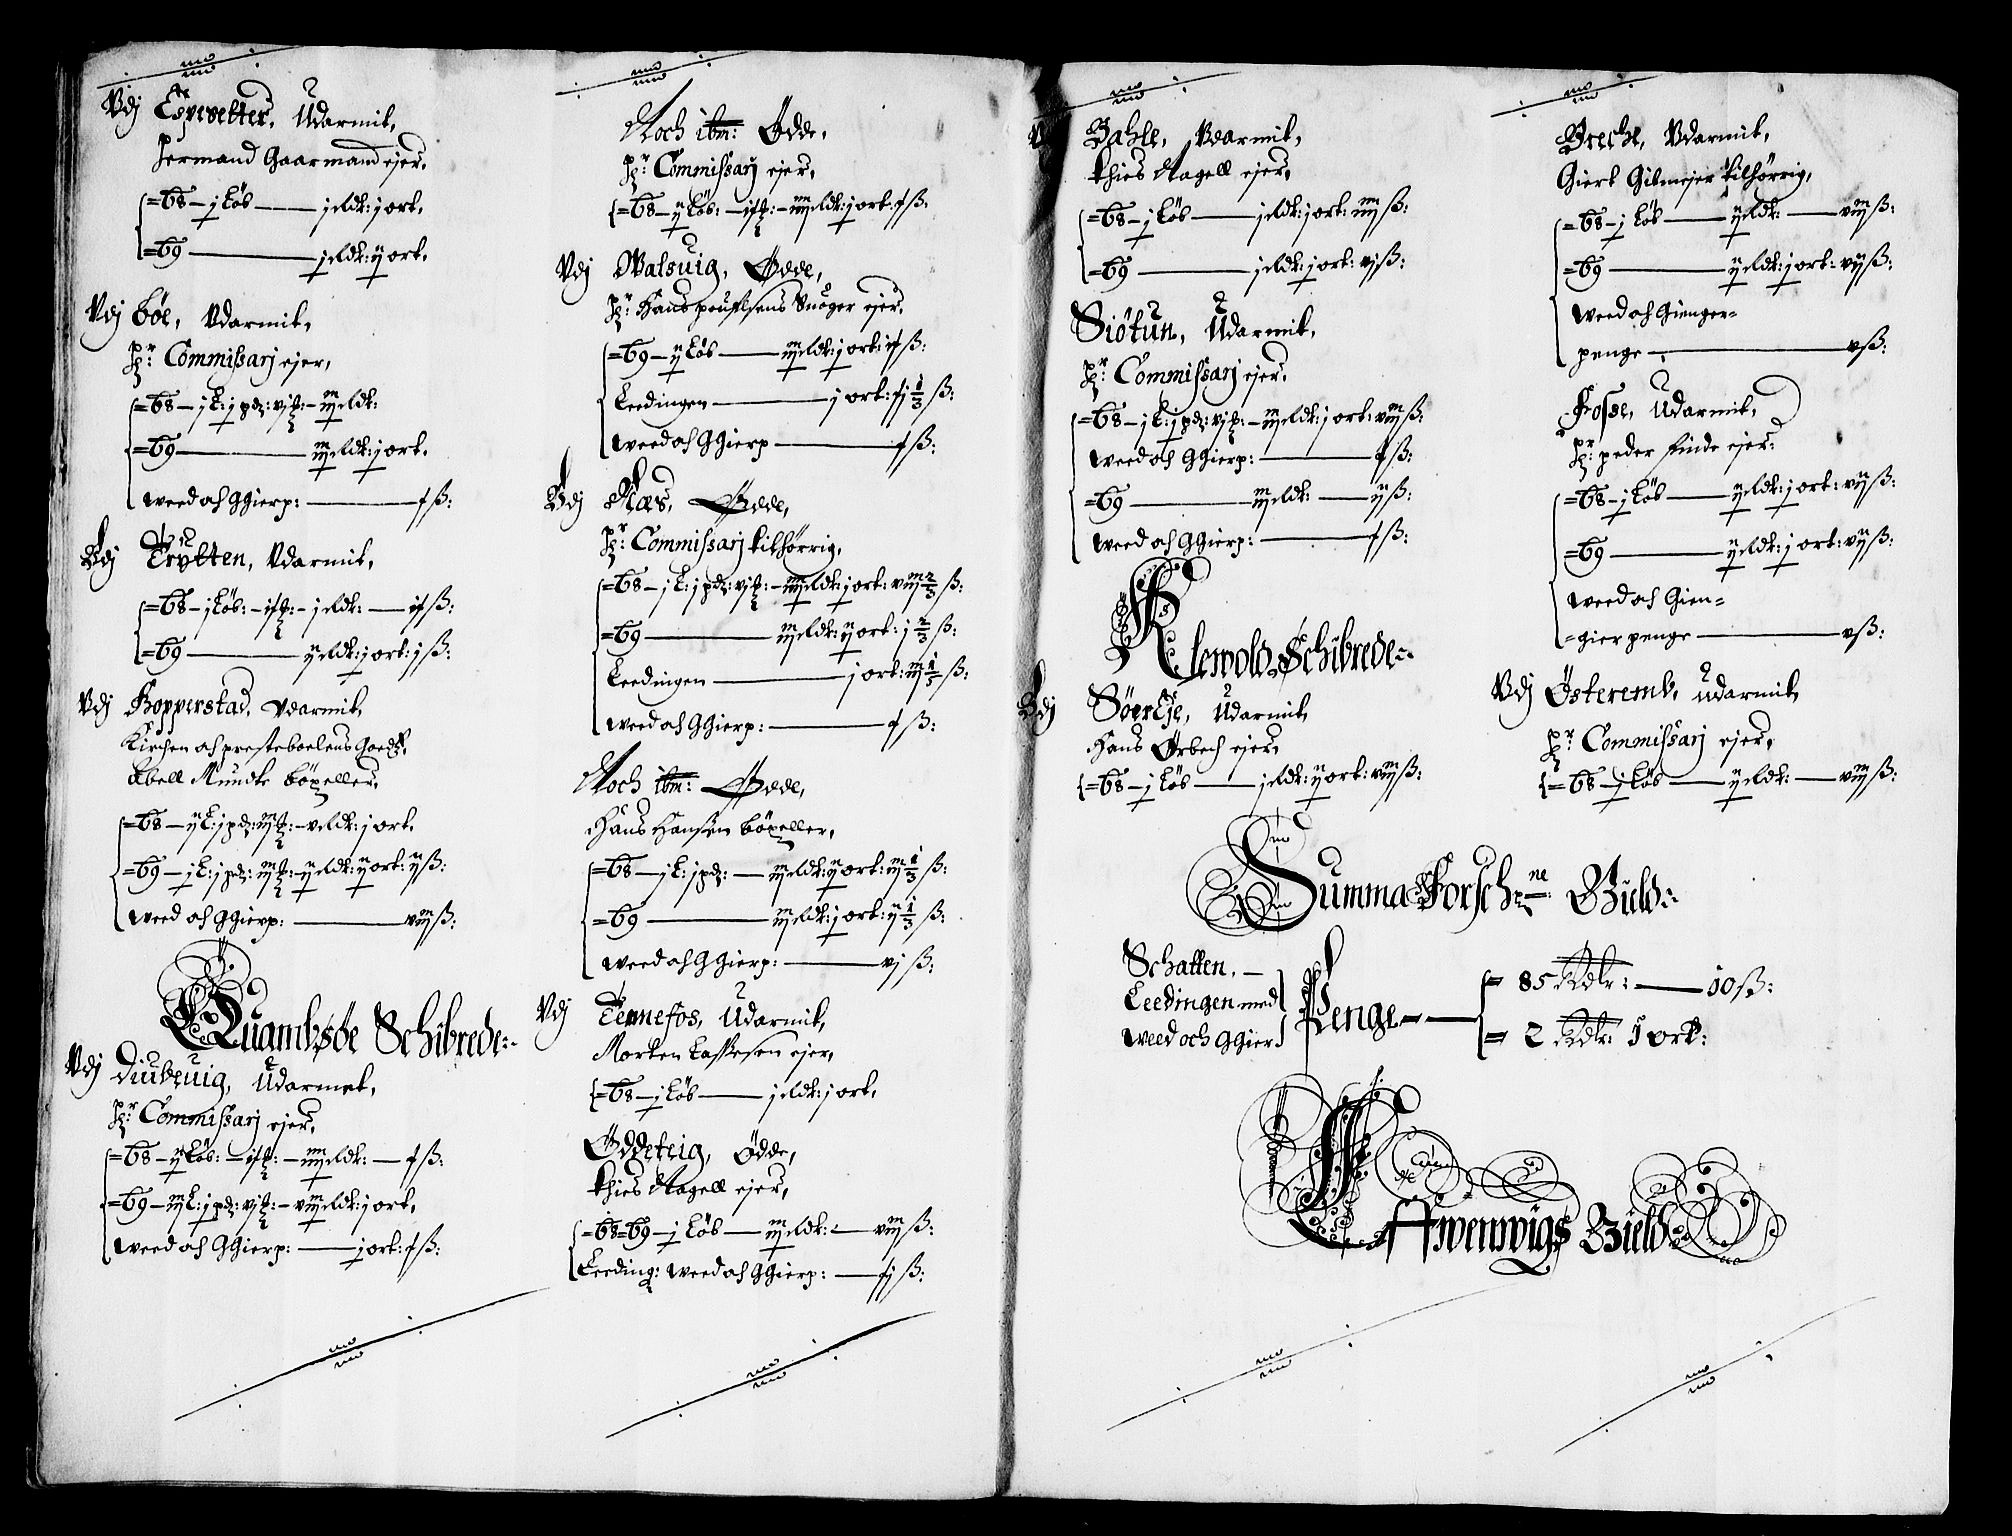 Vdj Espesetter, Udarmit,
Hermand Gaarmand ejer,
=68 – j Løb — j Rdlr: j ort,
=69 — j Rdlr: ij ort,
Vdj Bøe, Vdarmit,
Hr: Commissarj ejer,
=68 – j L: j pd: vj – iij Rdlr:
=69 — iij Rdlr: j ort,
weed och Ggierp: — ß:
Vdj Trytten, Vdarmit,
=68 – j Løb: – j Rdlr: — ß:
=69 — ij Rdlr: j ort: j ß:
Vdj Kopperstad, Vdarmit,
Kirchen och presteboelens Goedz,
Abell Mundte böxeller,
=68 – ij L: j pd: iij – v Rdlr: j ort,
=69 – j L: j pd: iij – ij Rdlr: ij ort: ij ß:
weed och Ggierp: — viij ß:
Quambsøe Schibrede:
Vdj Diubeuig, Udarmet,
Hr: Commissarj ejer,
=68 – ij Løb: – iiij Rdlr: — ß:
=69 – iij L: j pd: vj – viij Rdlr: j ort,
weed och Ggierp: — j ort: ß:
Noch ibm: Ødde,
Hr: Commissarj ejer,
=68 – ij Løb: – iiij Rdlr: j ort: ß:
Vdj Walsuig, Ødde,
Hr: Hans pouflsens Suoger ejer,
=69 – ij Løb — iij Rdlr: j ort: ß:
Leedingen — j ort: 1/3 ß:
weed och Ggierp — ß:
Vdj Næs, Ødde,
Hr: Commissarj tilhørrig,
=68 – j L: j pd: vj – iiij Rdlr: j ort: viij 2/3 ß:
=69 — iij Rdlr: ij ort: j 2/3 ß:
Leedingen — j ort: iij 1/3 ß:
weed och Ggierp: — ß:
Noch ibm: Ødde,
Hans Hansen böxeller,
=68 – j L: j pd: — iij Rdlr: ij ort: iij 1/3 ß:
=69 — iij Rdlr: j ort: ij 1/3 ß:
weed och Ggierp: — vj ß:
Vdj Tennefos, Udarmit,
Morten Lassesen ejer,
=68 – j Løb — j Rdlr: j ort,
Øddeteig, Ødde,
Thies Nagell ejer,
=68=69 – j Løb — iij Rdlr: — viij ß:
Leeding: weed och Ggierp: — ß:
Bahle, Vdarmit,
Thies Nagell ejer,
=68 – j Løb — j Rdlr: j ort: iiij ß:
=69 — j Rdlr: j ort: vj ß:
Siötun, Udarmit,
Hr: Commissarj ejer,
=68 – j L: j pd: vj – iij Rdlr: j ort: viij ß:
weed och Ggierp: — ß:
=69 — iij Rdlr: — ij ß:
weed och Ggierp: — ß:
Klewold Schibrede:
Vdj Søretje, Udarmit,
Hans Ørbech ejer,
=68 – j Løb — j Rdlr: ij ort: viij ß:
Breche, Vdarmit,
Giert Gilmejer tilhørrig,
=68 – j Løb — ij Rdlr: — viij ß:
=69 — ij Rdlr: j ort: vij ß:
weed och Gienger=
penge — vß:
Fosse, Udarmit,
Hr: peder Finde ejer:
=68 – j Løb — ij Rdlr: j ort: vij ß:
=69 — ij Rdlr: j ort: vij ß:
weed och Gien=
=gierpenge — vß:
Vdj Østeremb, Udarmit,
Hr: Commissarj ejer,
=68 – j Løb — ij Rdlr: — viij ß:
Summa Forsch:ne: Gield:
Schatten, –
Leedingen med
weed och Ggier
Penge
= 85 Rdlr: — 10 ß:
= 2 Rdlr: 1 ort:
Effwenwigs Gield